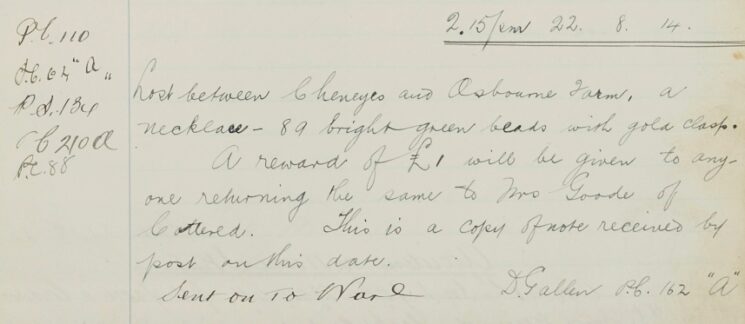 2.15/pm 22. 8. 14.
P.C. 110
P.C. 64 "A"
P.S. 134
P.C. 210 A
P.C. 88
Lost between Cheneyes and Osbourne Farm, a
necklace - 89 bright green beads with gold clasp.
A reward of £1 will be given to any-
one returning the same to Mrs Goode of
Cottered. This is a copy of note received by
post on this date.
Sent on to Ware D. Gallen P.C. 162 "A"